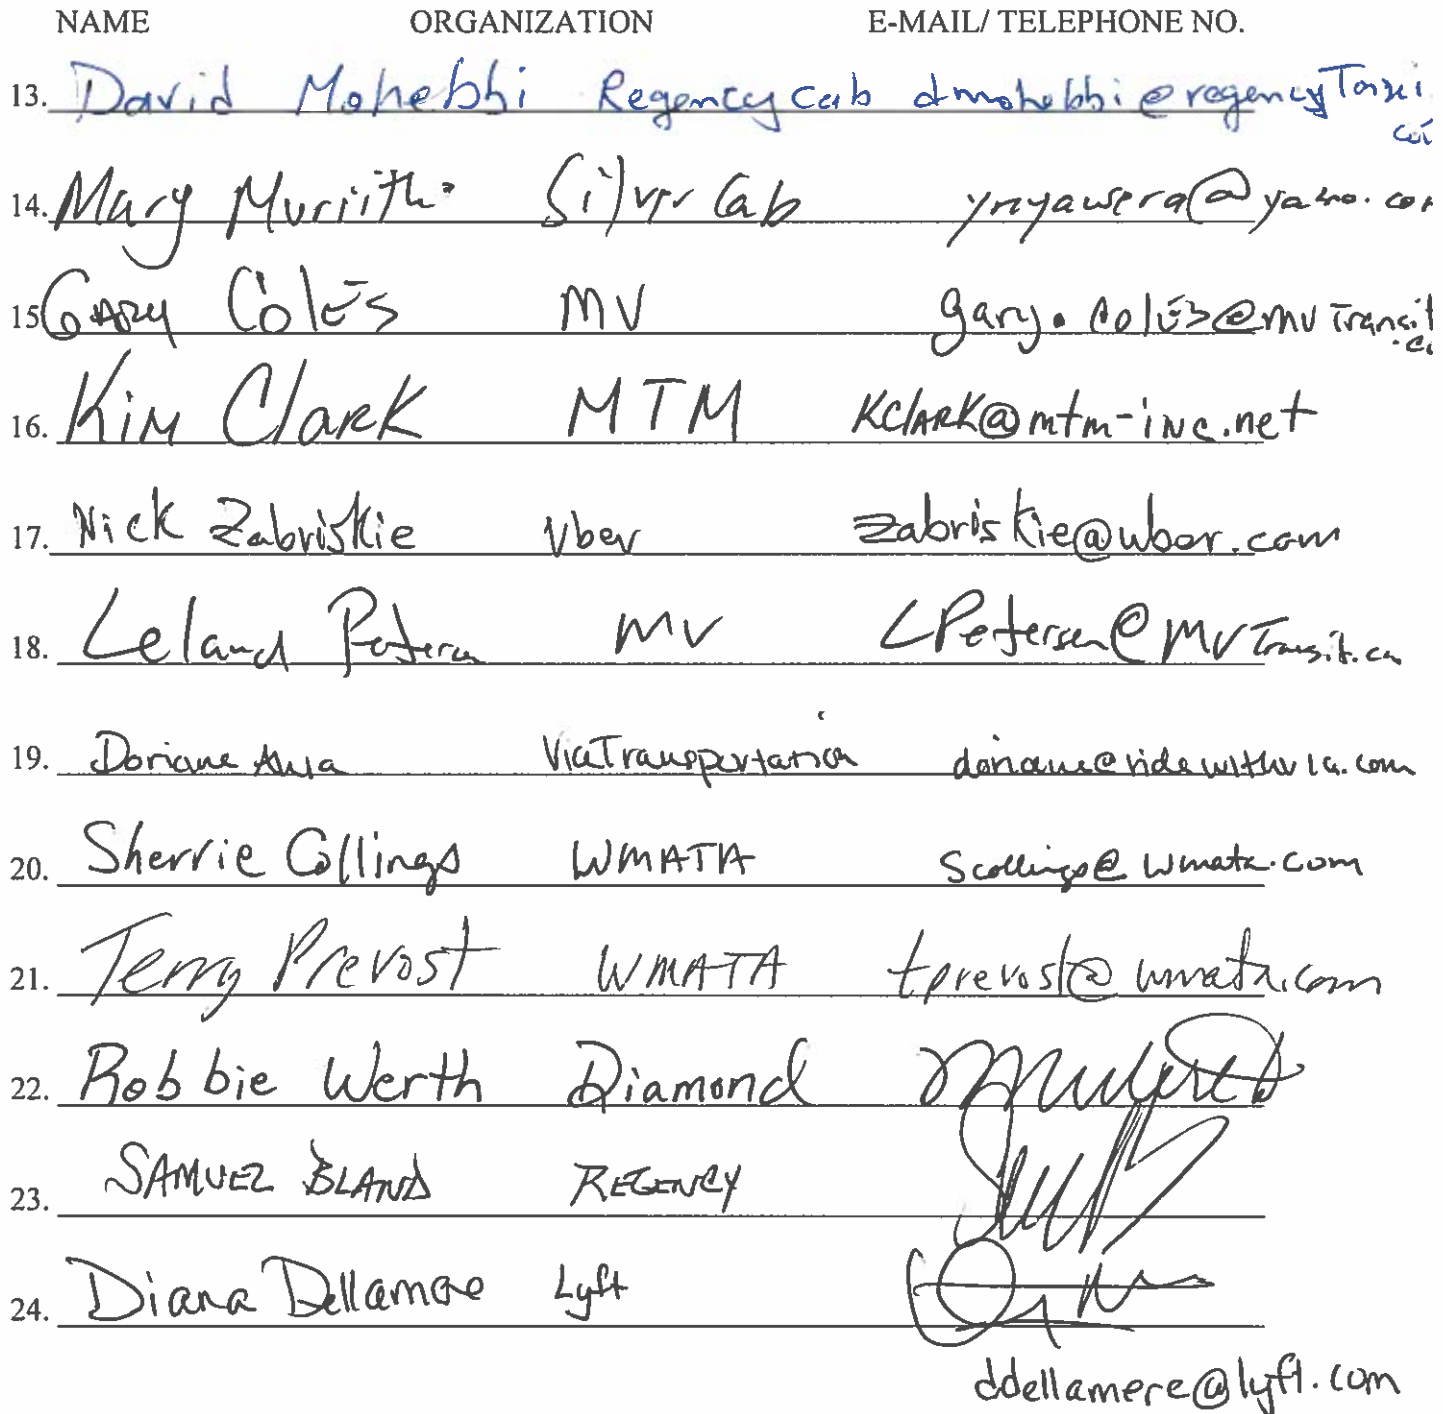 NAME ORGANIZATION E-MAIL/ TELEPHONE NO.
13. David Mohebbi Regency cab dmohebbi@regencyTaxi
14. Mary Muriithi Silver Cab @yahoo.com
15 GARY COLES MV gary.coles@mvTransit
16. KIM ClARK MTM KClARK@mtm-inc.net
17. Nick Zabriskie Uber zabriskie@uber.com
18. Leland Petersen MV LPetersen@MVTransit.com
19. Doriane ViaTransportation doriane@ridewithvia.com
20. Sherrie Collings WMATA Scollings@wmata.com
21. Terry Prevost WMATA tprevost@wmata.com
22. Robbie Werth Diamond
23. SAMUEL BLAND REGENCY
24. Diana Dellamere Lyft
ddellamere@lyft.com